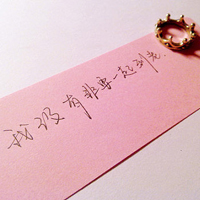 我没有非要一起到老